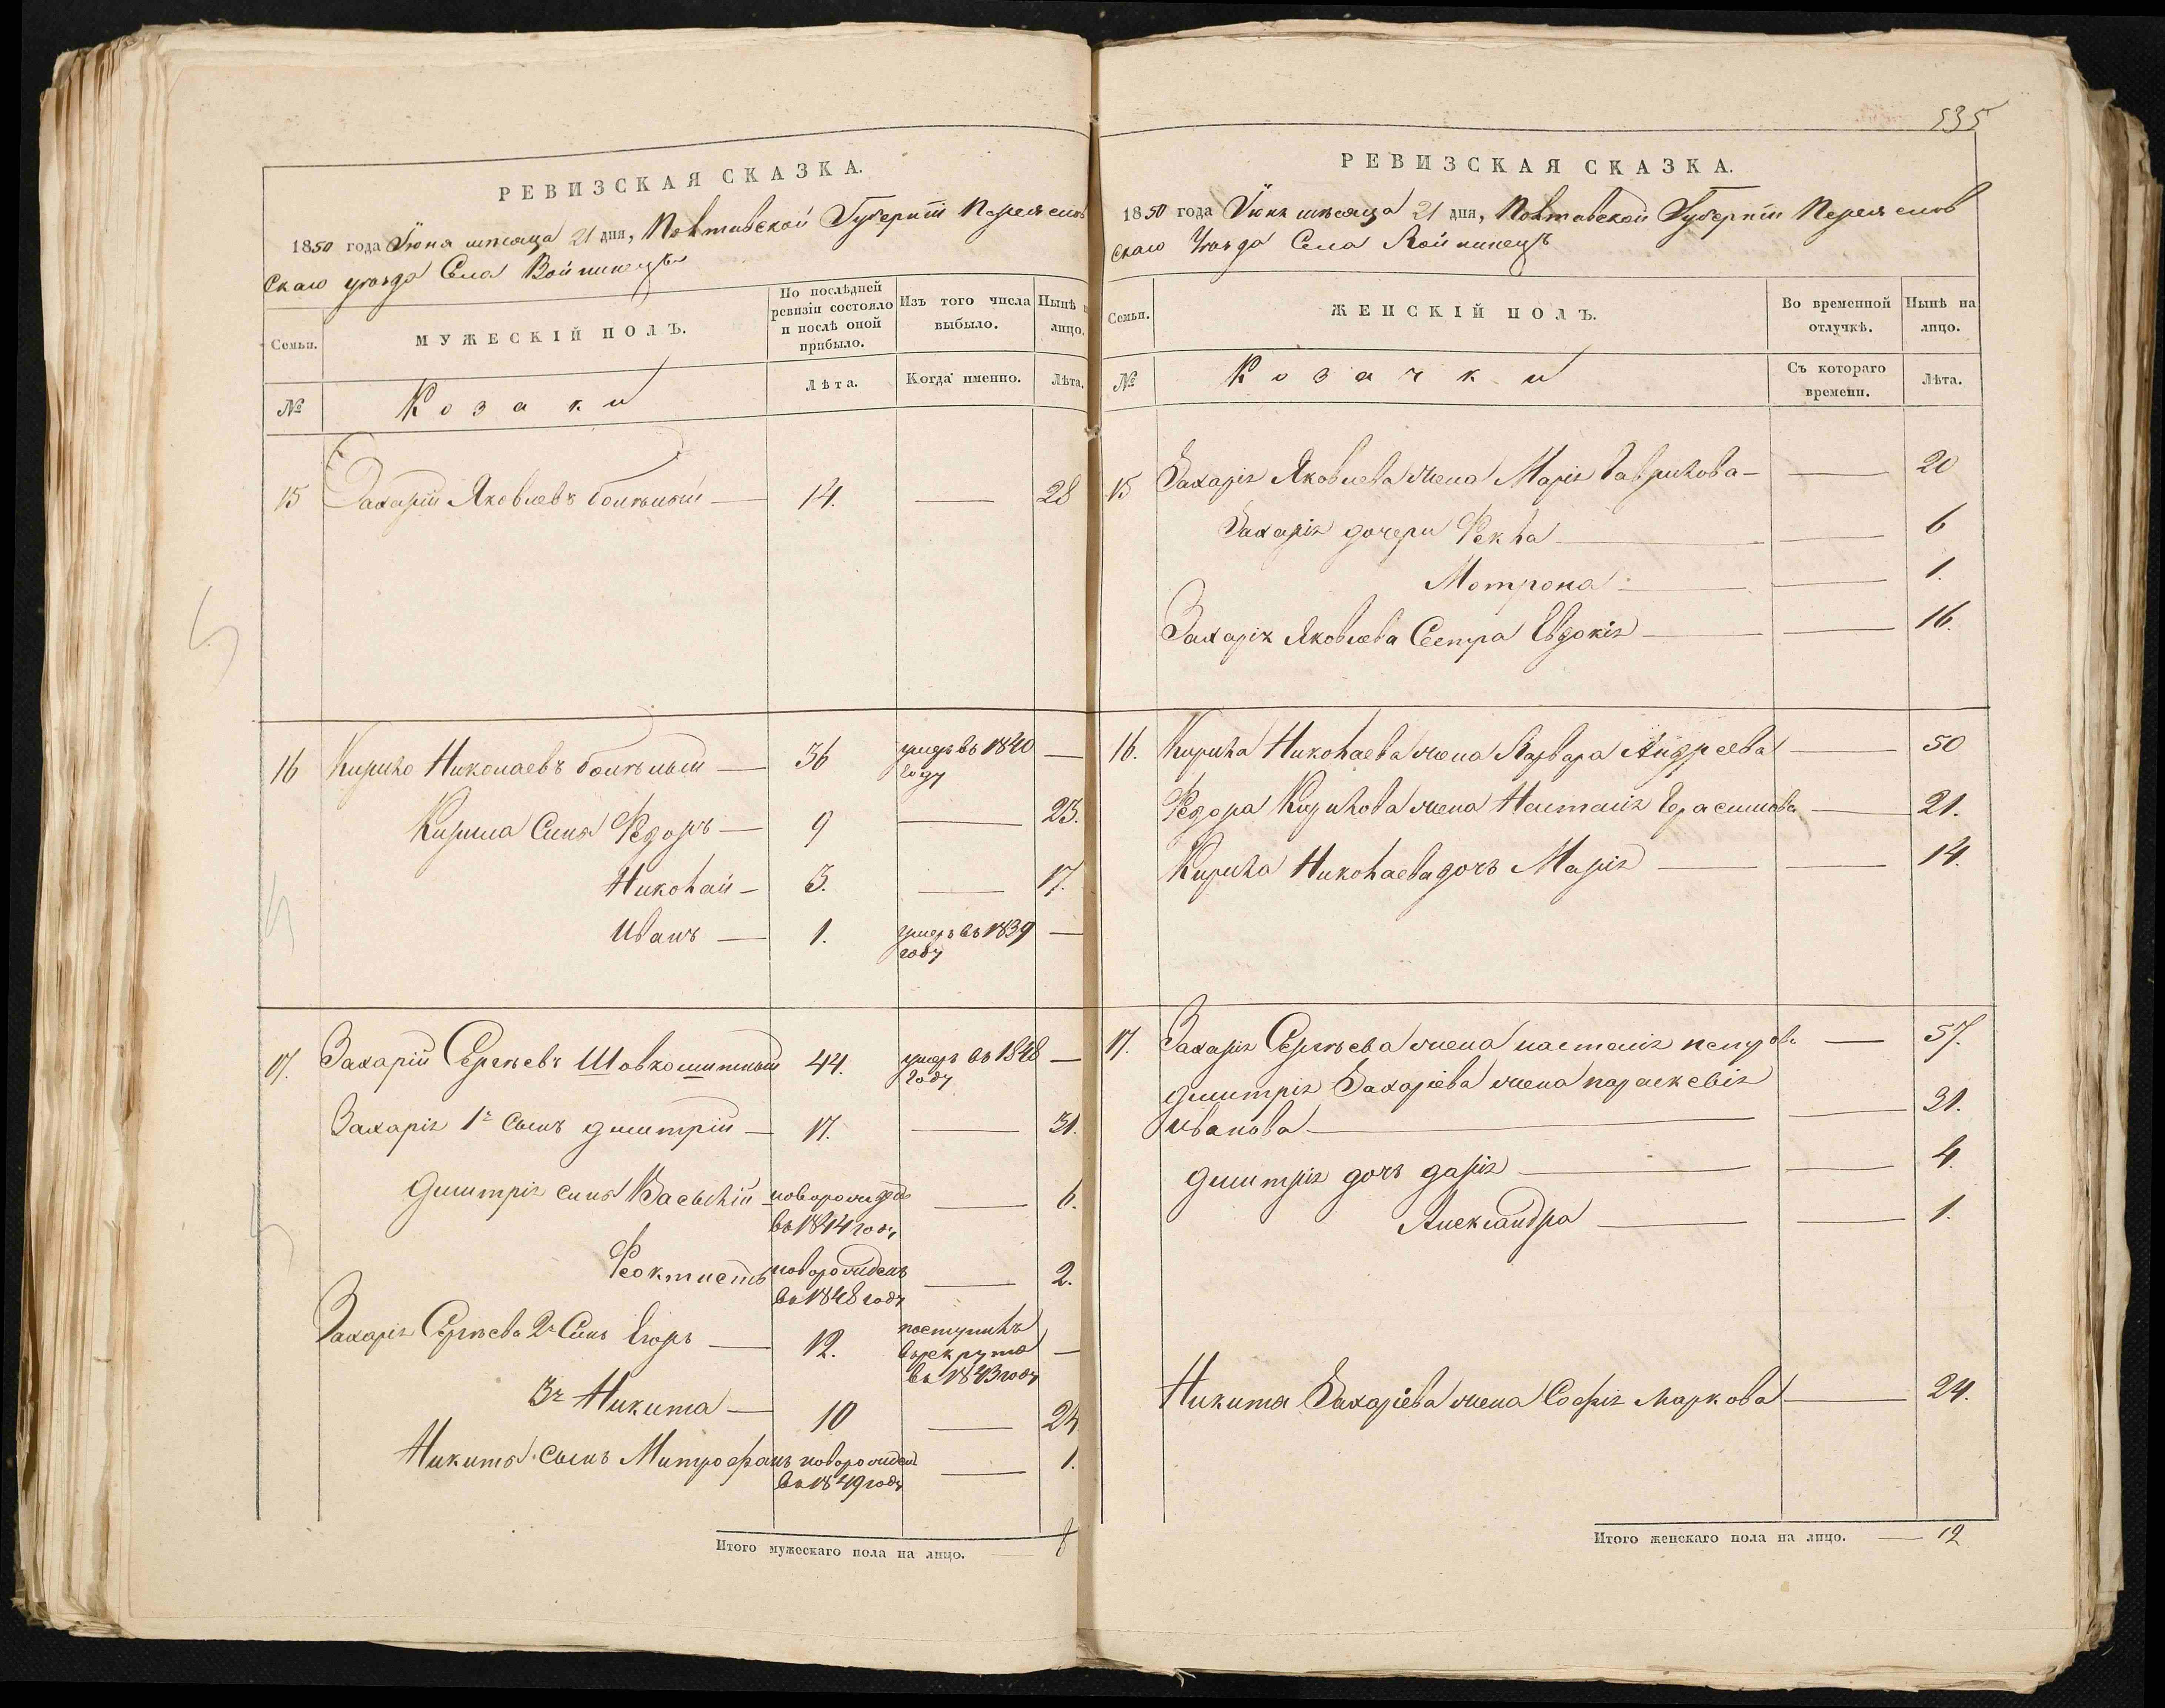 РЕВИЗСКАЯ СКАЗКА.
1850 года Іюня мѣсяца 21 дня, Полтавской Губерніи Переяслов
скаго уѣзда Села Войнинецъ
Семьи.
МУЖЕСКІЙ ПОЛЪ.
По послѣдней ревизіи состояло и послѣ оной прибыло.
Изъ того числа выбыло.
Нынѣ на лицо.
№
Козаки
Лѣта.
Когда именно.
Лѣта.
15 Захарій Яковлевъ — 14. — 28
16 Кирило Николаевъ — 36 умеръ въ 1840 —
году
Кирила Сынъ Федоръ — 9 — 23.
Николай — 3. — 17.
Иванъ — 1. умеръ въ 1839 —
году
17. Захарій Сергѣевъ Шовкошитный 44. умеръ въ 1848 —
году
Захарія 1й Сынъ дмитрій — 17. — 31.
Дмитрія сынъ Василій новорожденъ — 6.
въ 1844 году
Феоктистъ новорожденъ — 2.
въ 1848 году
Захарія Сергѣева 2й Сынъ Егоръ — 12. поступилъ —
въ рекруты
въ 1843 году
3й Никита — 10 — 24
Никиты Сынъ Митрофанъ новорожден — 1.
въ 1849 году
Итого мужескаго пола на лицо. — 8
535
РЕВИЗСКАЯ СКАЗКА.
1850 года Іюня мѣсяца 21 дня, Полтавской Губерніи Переяслов
скаго Уѣзда Села Войнинецъ
Семьи.
ЖЕНСКІЙ ПОЛЪ.
Во временной отлучкѣ.
Нынѣ на лицо.
№
Козачки
Съ котораго времени.
Лѣта.
15 Захарія Яковлева жена Марія Гаврилова — — 20
Захарія дочери Фекла — — 6
Мотрона — — 1.
Захарія Яковлева Сестра Евдокія — — 16.
16. Кирила Николаева жена Варвара Андреева — 50
Федора Кирилова жена Наталія Герасимова — 21.
Кирила Николаева дочь Марія — — 14.
17. Захарія Сергѣева жена наталія петрова — 57.
дмитрія Захаріева жена параскевія
Иванова — — 31.
дмитрія дочь дарія — — 4.
Александра — — 1.
Никиты Захаріева жена Софія Маркова — 24.
Итого женскаго пола на лицо. — 12